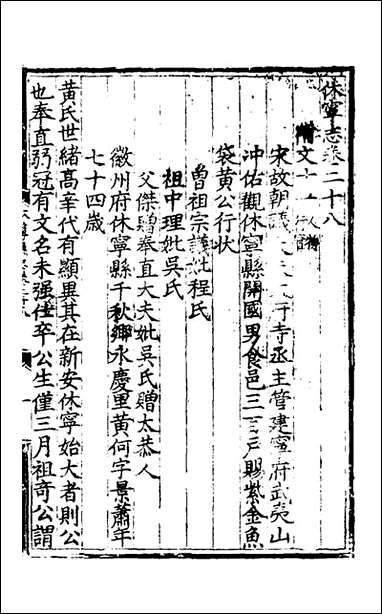 休寧志卷二十八
附文十一人物行實
宋故朝議大夫大府寺丞主管建寧府武夷山
冲佑觀休寧縣開國男食邑三百戶賜紫金魚
袋黄公行状
曽祖宗議妣程氏
祖中理妣吴氏
父傑贈奉直大夫妣吴氏贈太恭人
徽州府休寧縣千秋鄉永慶里黄何字景蕭年
七十四歳
黄氏世緒髙辛代有顯異其在新安休寧始大者則公
也奉直弱冠有文名未强仕卒公生僅三月祖竒公謂